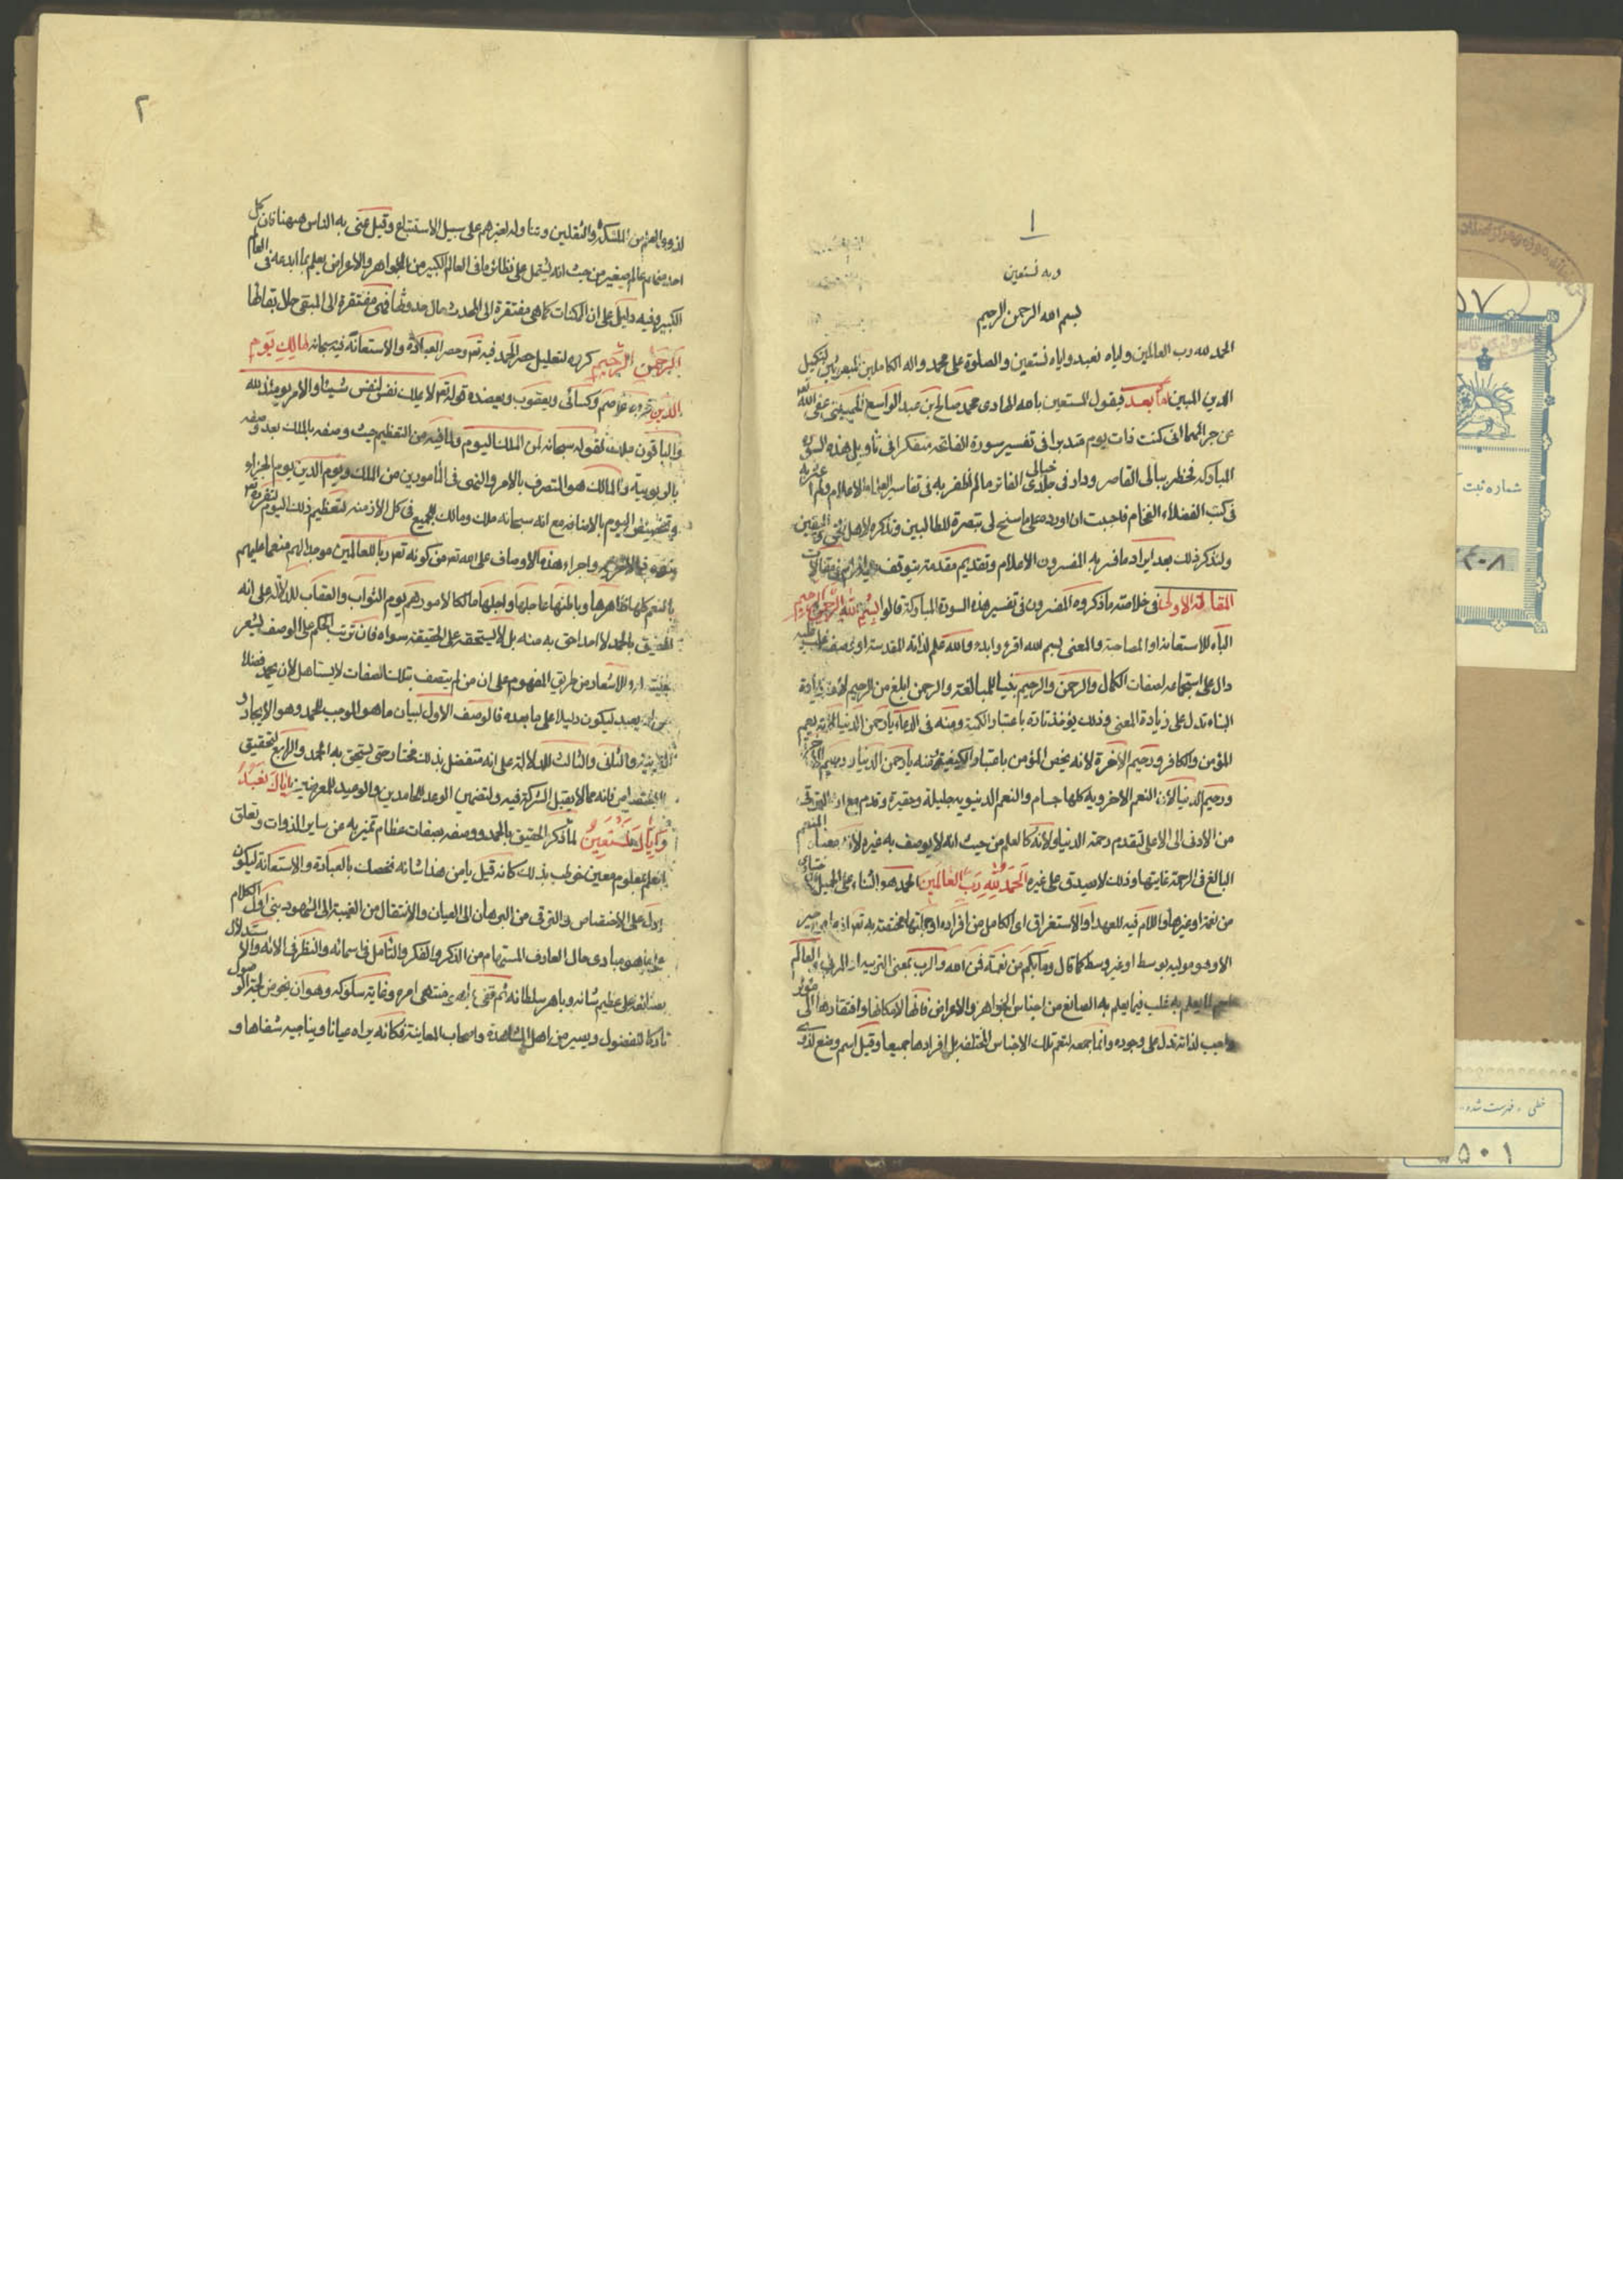 ١
وبه نستعين
بسم الله الرحمن الرحيم
الحمد لله رب العالمين واياه نعبد واياه نستعين والصلوة على محمد واله الكاملين المبعوثين لتكميل
الدين المبين اما بعد فيقول المستعين بالله الهادى محمد صالح بن عبد الواسع الحسينى عفى الله
عن جرائمهما انى كنت ذات يوم متدبرا فى تفسير سورة الفاتحه متفكرا فى تأويل هذه السورة
المباركه فخطر ببالى القاصر ودار فى خيالى الفاتر مالم اظفر به فى تفاسير العلماء الاعلام ولم اعثر به
فى كتب الفضلاء الفخام فاحببت ان اورده على ما سنح لى تبصرة للطالبين وتذكرة لاهل واليقين
ولنذكر ذلك بعد ايراد ما فسر به المفسرون الاعلام وتقديم مقدمة يتوقف مقالات
المقالة الاولى فى خلاصة ما ذكروه المفسرون فى تفسير هذه السورة المباركة قالوا بسم الله الرحمن الرحيم
الباء للاستعانة او المصاحبة والمعنى بسم الله اقرء وابدء والله علم لذاته المقدسة او وصف غلب عليه
دال على استجماعه لصفات الكمال والرحمن والرحيم بنيا للمبالغة والرحمن ابلغ من الرحيم لان زيادة
البناء تدل على زيادة المعنى وذلك يؤخذ تارة باعتبار الكمية ومنه فى الدعاء يا رحمن الدنيا لانه يعم
المؤمن والكافر ورحيم الاخرة لانه يخص المؤمن باعتبار الكيفية ومنه يا رحمن الدنيا ورحيم الاخرة
ورحيم الدنيا لان النعم الاخروية كلها جسام والنعم الدنيوية جليلة وحقيرة وقدم مع ان الترقى
من الادنى الى الاعلى لتقدم رحمة الدنيا ولانه كالعلم من حيث انه لا يوصف به غيره لان معناه المنعم
البالغ فى الرحمة غايتها وذلك لا يصدق على غيره الحمد لله رب العالمين الحمد هو الثناء على الجميل
من نعمة او غيرها واللام فيه للعهد او الاستغراق اى الكامل من افراده او جملتها مختصة به تعم اذ ما من خير
الا وهو موليه بوسط او غير وسط كما قال وما بكم من نعمة فمن الله والرب بمعنى التربية والعالم
اسم لما يعلم به غلب فيما يعلم به الصانع من اجناس الجواهر والاعراض فانها لامكانها وافتقارها الى مؤثر
واجب لذاته تدل على وجوده وانما جمعه لتعم تلك الاجناس المختلفه بل افرادها جميعا وقيل اسم وضع لذوى
٢
لذوى العلم من الملئكة والثقلين وتناوله لغيرهم على سبيل الاستتباع وقيل عنى به الناس ههنا فان كل
احد منهم عالم صغير من حيث انه يشتمل على نظائر ما فى العالم الكبير من الجواهر والاعراض يعلم بما ابدعه فى العالم
الكبير وفيه دليل على ان الممكنات كما هى مفتقرة الى المحدث حال حدوثها فهى مفتقرة الى المبقى حال بقائها
الرحمن الرحيم كرره لتعليل حصر الحمد فيه تعم وحصر العبادة والاستعانة فيه سبحانه مالك يوم
الدين قرءه عاصم وكسائى ويعقوب ويعضده قوله تعم لا يملك نفس لنفس شيئا والامر يومئذ لله
والباقون ملك لقوله سبحانه لمن الملك اليوم ولما فيه من التعظيم حيث وصفه بالملك بعد وصفه
بالربوبية والمالك هو المتصرف بالامر والنهى فى المأمورين من الملك ويوم الدين يوم الجزاء
وتخصيص اليوم بالاضافة مع انه سبحانه ملك ومالك للجميع فى كل الازمنة لتعظيم ذلك اليوم لتفرده تعم
بنفوذ فيه الامر واجراء هذه الاوصاف على الله تعم من كونه تعم ربا للعالمين موجدا لهم منعما عليهم
بالنعم كلها ظاهرها وباطنها عاجلها واجلها مالكا لامورهم يوم الثواب والعقاب للدلالة على انه
الحقيق بالحمد لا احد احق به منه بل لا يستحقه على الحقيقة سواه فان ترتب الحكم على الوصف يشعر
بعليته له وللاشعار من طريق المفهوم على ان من لم يتصف بتلك الصفات لا يستاهل لان يحمد فضلا
عن ان يعبد ليكون دليلا على ما بعده فالوصف الاول لبيان ما هو الموجب للحمد وهو الايجاد و
التربية والثانى والثالث للدلالة على انه متفضل بذلك مختار حتى يستحق به الحمد والرابع لتحقيق
الاختصاص فانه مما لا يقبل الشركة فيه ولتضمين الوعد للحامدين والوعيد للمعرضين اياك نعبد
واياك نستعين لما ذكر الحقيق بالحمد ووصفه بصفات عظام تميز به عن ساير الذوات وتعلق
العلم بمعلوم معين خوطب بذلك كانه قيل يا من هذا شانه نخصك بالعبادة والاستعانة ليكون
ادل على الاختصاص والترقى من البرهان الى العيان والانتقال من الغيبة الى الشهود بنى اول الكلام
على ما هو مبادى حال العارف المستهام من الذكر والفكر والتأمل فى اسمائه والنظر فى الائه والاستدلال
بصنائعه على عظيم شانه وباهر سلطانه ثم قفى بما هو منتهى امره وغاية سلوكه وهو ان يخوض لجة الوصول
تاركا للفضول ويصير من اهل المشاهدة واصحاب المعاينة فكانه يراه عيانا ويناجيه شفاها و
شماره ثبت
خطى - فهرست شده